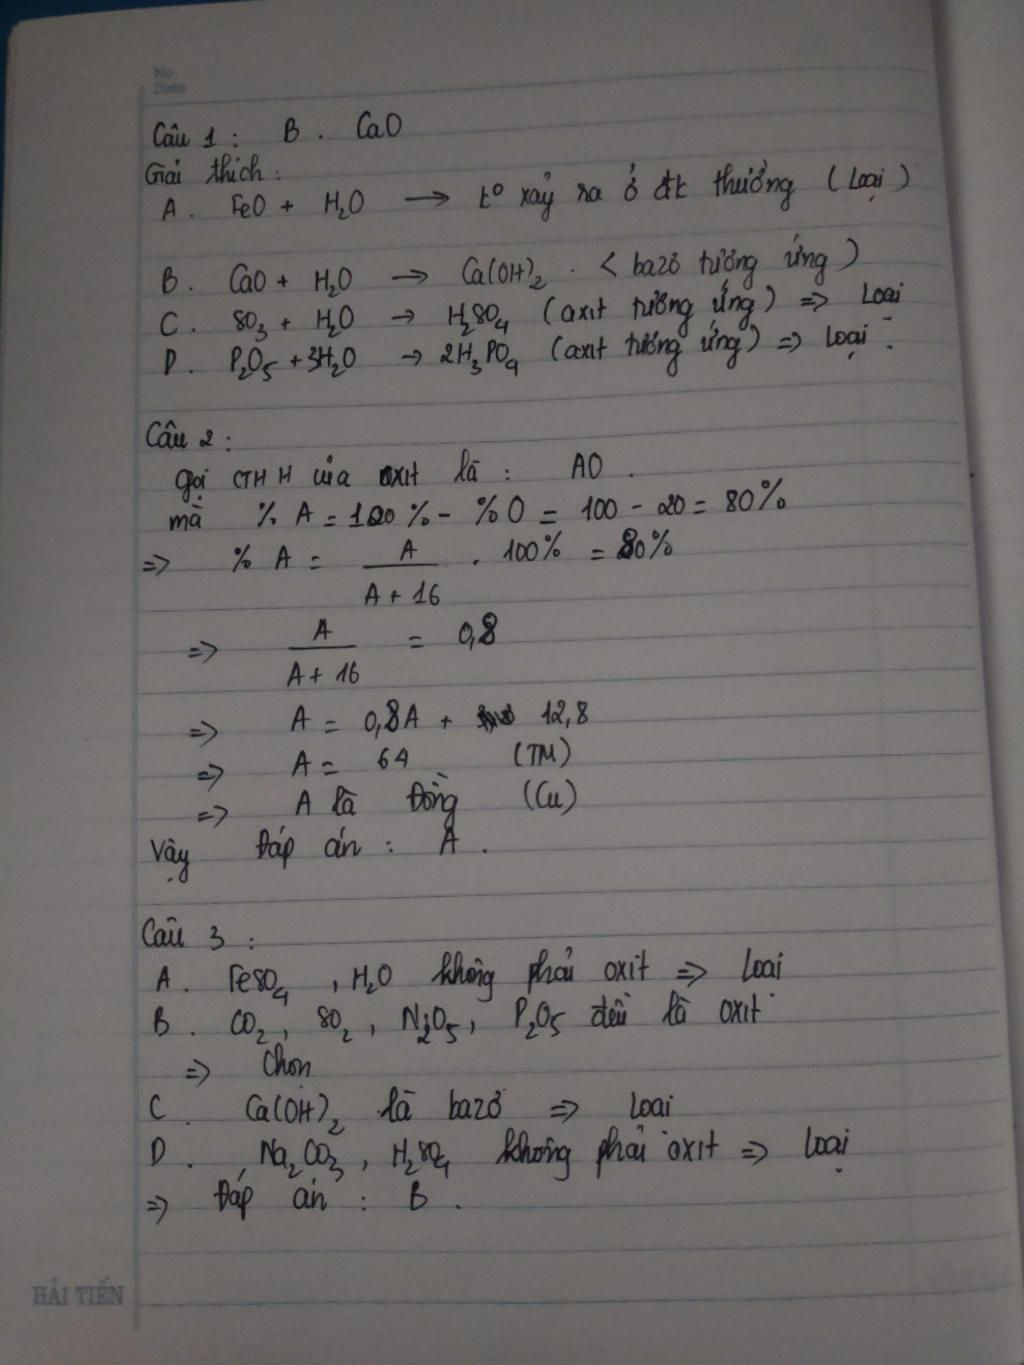 No.
Date
Câu 1 : B . CaO
Giải thích :
A . FeO + H₂O → t° xảy ra ở đk thường ( Loại )
B . CaO + H₂O → Ca(OH)₂ . < bazơ tương ứng )
C . SO₃ + H₂O → H₂SO₄ (axit tương ứng ) => Loại
D . P₂O₅ + 3H₂O → 2H₃PO₄ (axit tương ứng ) => Loại .
Câu 2 :
gọi CTHH của oxit là : AO .
mà % A = 100 % - % O = 100 - 20 = 80%
=> % A = A / (A + 16) . 100% = 80%
=> A / (A + 16) = 0,8
=> A = 0,8A + 12,8
=> A = 64 (TM)
=> A là Đồng (Cu)
Vậy Đáp án : A .
Câu 3 :
A . FeSO₄ , H₂O không phải oxit => Loại
B . CO₂ , SO₂ , N₂O₅ , P₂O₅ đều là oxit
=> Chọn
C . Ca(OH)₂ là bazơ => Loại
D . , Na₂CO₃ , H₂SO₄ không phải oxit => Loại
=> Đáp án : B .
HẢI TIẾN